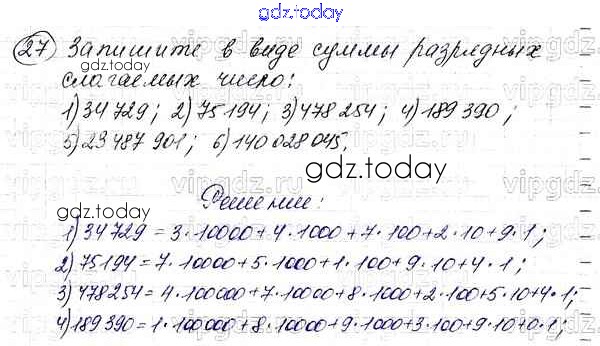 gdz.today
27 Запишите в виде суммы разрядных
слагаемых число:
1) 34 729; 2) 75 194; 3) 478 254; 4) 189 390;
5) 23 487 901; 6) 140 028 045.
gdz.today
Решение:
gdz.today
1) 34 729 = 3·10000+4·1000+7·100+2·10+9·1;
2) 75194 = 7·10000+5·1000+1·100+9·10+4·1;
3) 478254 = 4·100000+7·10000+8·1000+2·100+5·10+4·1;
4) 189390 = 1·100000+8·10000+9·1000+3·100+9·10+0·1;